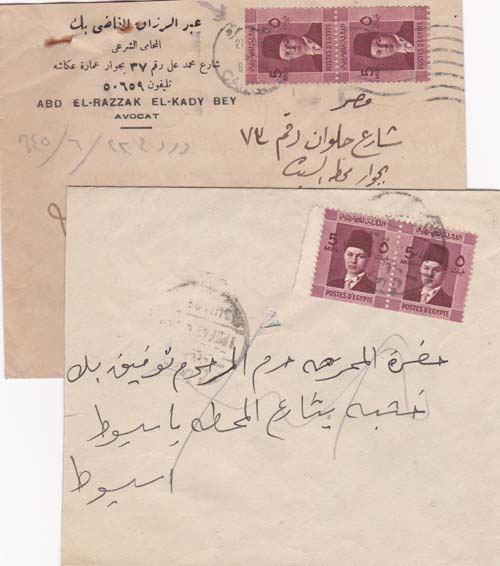 عبد الرزاق القاضى بك
المحامى الشرعى
شارع محمد على رقم ٣٧ بجوار عمارة عكاشه
تليفون ٥٠٦٥٩
ABD EL-RAZZAK EL-KADY BEY
AVOCAT
مصر
شارع حلوان رقم ٧٣
بجوار محطه
5 MILLS ٥
5 MILLS ٥
POSTES D'EGYPTE
POSTES D'EGYPTE
حضرة حرم المرحوم توفيق بك
خشبه بشارع المحطه باسيوط
اسيوط